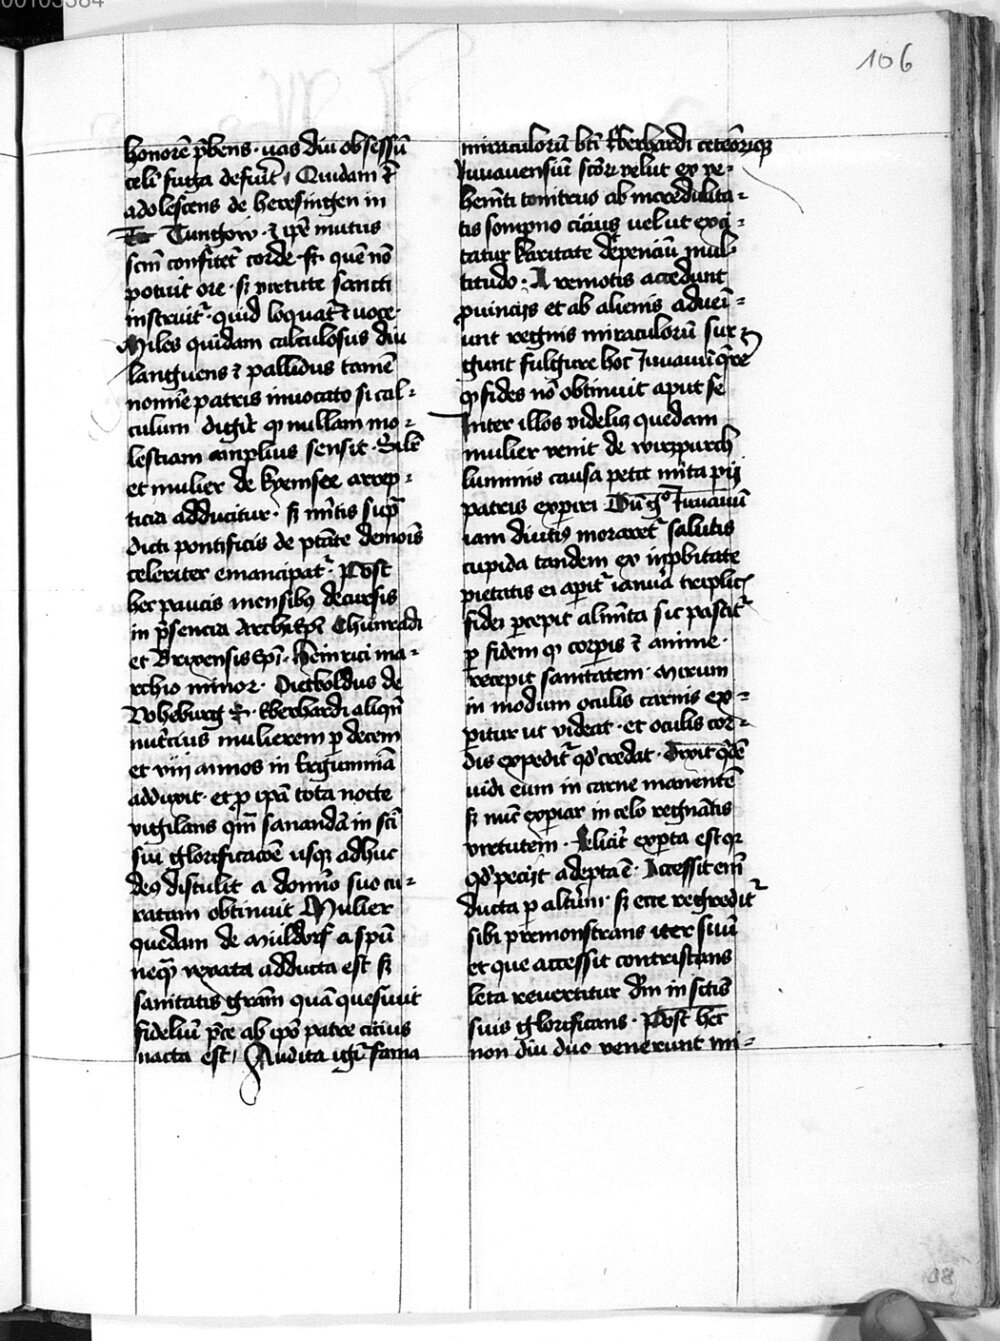 106
honorē p̄bens · uas diu obsessū
celi fuga defuit / Quidam ē
adolescens de hecesingen in
Tungow · ⁊ ip̄e mutus
scm̄ confitet᷑ corde · st · quē nō
potuit ore · sꝫ virtute sancti
instruit᷑ · quid loquat᷑ ⁊ voce ·
Miles quidam calculosus diu
languens ⁊ pallidus tamē
nomīe patris inuocato si cal-
culum digit᷑ ꝙ nullam mo-
lestiam amplius sensit · Silr̄
et mulier de kyemsee arrep-
ticia adducitur · sꝫ mītis sup̄
dicti pontificis de ptāte demōis
celeriter emancipat᷑ · Post
hec paucis mensibꝯ decursis
in p̄sencia Archiep̄i Chunradi
et Brixensis ep̄i · Heinrici ma-
rchio minor · Dietboldus de
Vohburg Eberhardi aliqn̄
nutricius mulierem ꝑ decem
et viij annos in ergumniā
adduxit · et ꝓ ip̄a tota nocte
vigilans qm̄ sanandā in sc̄i
sui glorificacōe usqꝫ adhuc
deꝯ distulit a domīo suo cu-
ratam obtinuit Mulier
quedam de Müldorf a spū
neqm̄ vexata adducta est sꝫ
sanitatis grām quā quesiuit
fideliū p̄ce ab ip̄o patre cicius
nacta est / Audita igit᷑ fama
miraculorū bt̄i Eberhardi ceterorūqꝫ
Iuuauensiū sc̄or velut ex ve-
hemēti tonitruo ab incredulita-
tis sompno cicius uelut exci-
tatur karitate depenciū mul
titudo · A remotis accedunt
ꝓuincijs et ab alienis adueī-
unt regnis miraculorū sur
gunt fulgure hoc Iuuauū q̄re
ꝙ fides nō obtinuit aput se
Inter illos videlicꝫ quedam
mulier venit de wirzpurch
luminis causa petit mīta pij
patris experiri Cū gͦ Iuuauū
iam diutiꝯ moraret᷑ salutis
cupida tandem ex inp̄bitate
pietatis ei aperit᷑ ianua triplicꝫ
fidei percepit alimēta sic pascit᷑
ꝑ fidem ꝙ corꝑis ⁊ anime ·
recepit sanitatem · Mirum
in modum oculis carnis ex-
pitur ut videat · et oculis cor-
dis expedit᷑ qd̓ credat · Dixit q̄dē
uidi eum in carne manentē
sꝫ nūc experiar in celo regnātis
virtutem · Felicit᷑ exꝑta est qꝛ
qd̓ pecijt adepta ē · Accessit enī
ducta ꝑ altm̄ · sꝫ ecce regredit᷑
sibi premonstrans iter suū
et que accessit contristans
leta reuertitur dm̄ in sc̄tis
suis glorificans · Post hec
non diu duo venerunt mi-